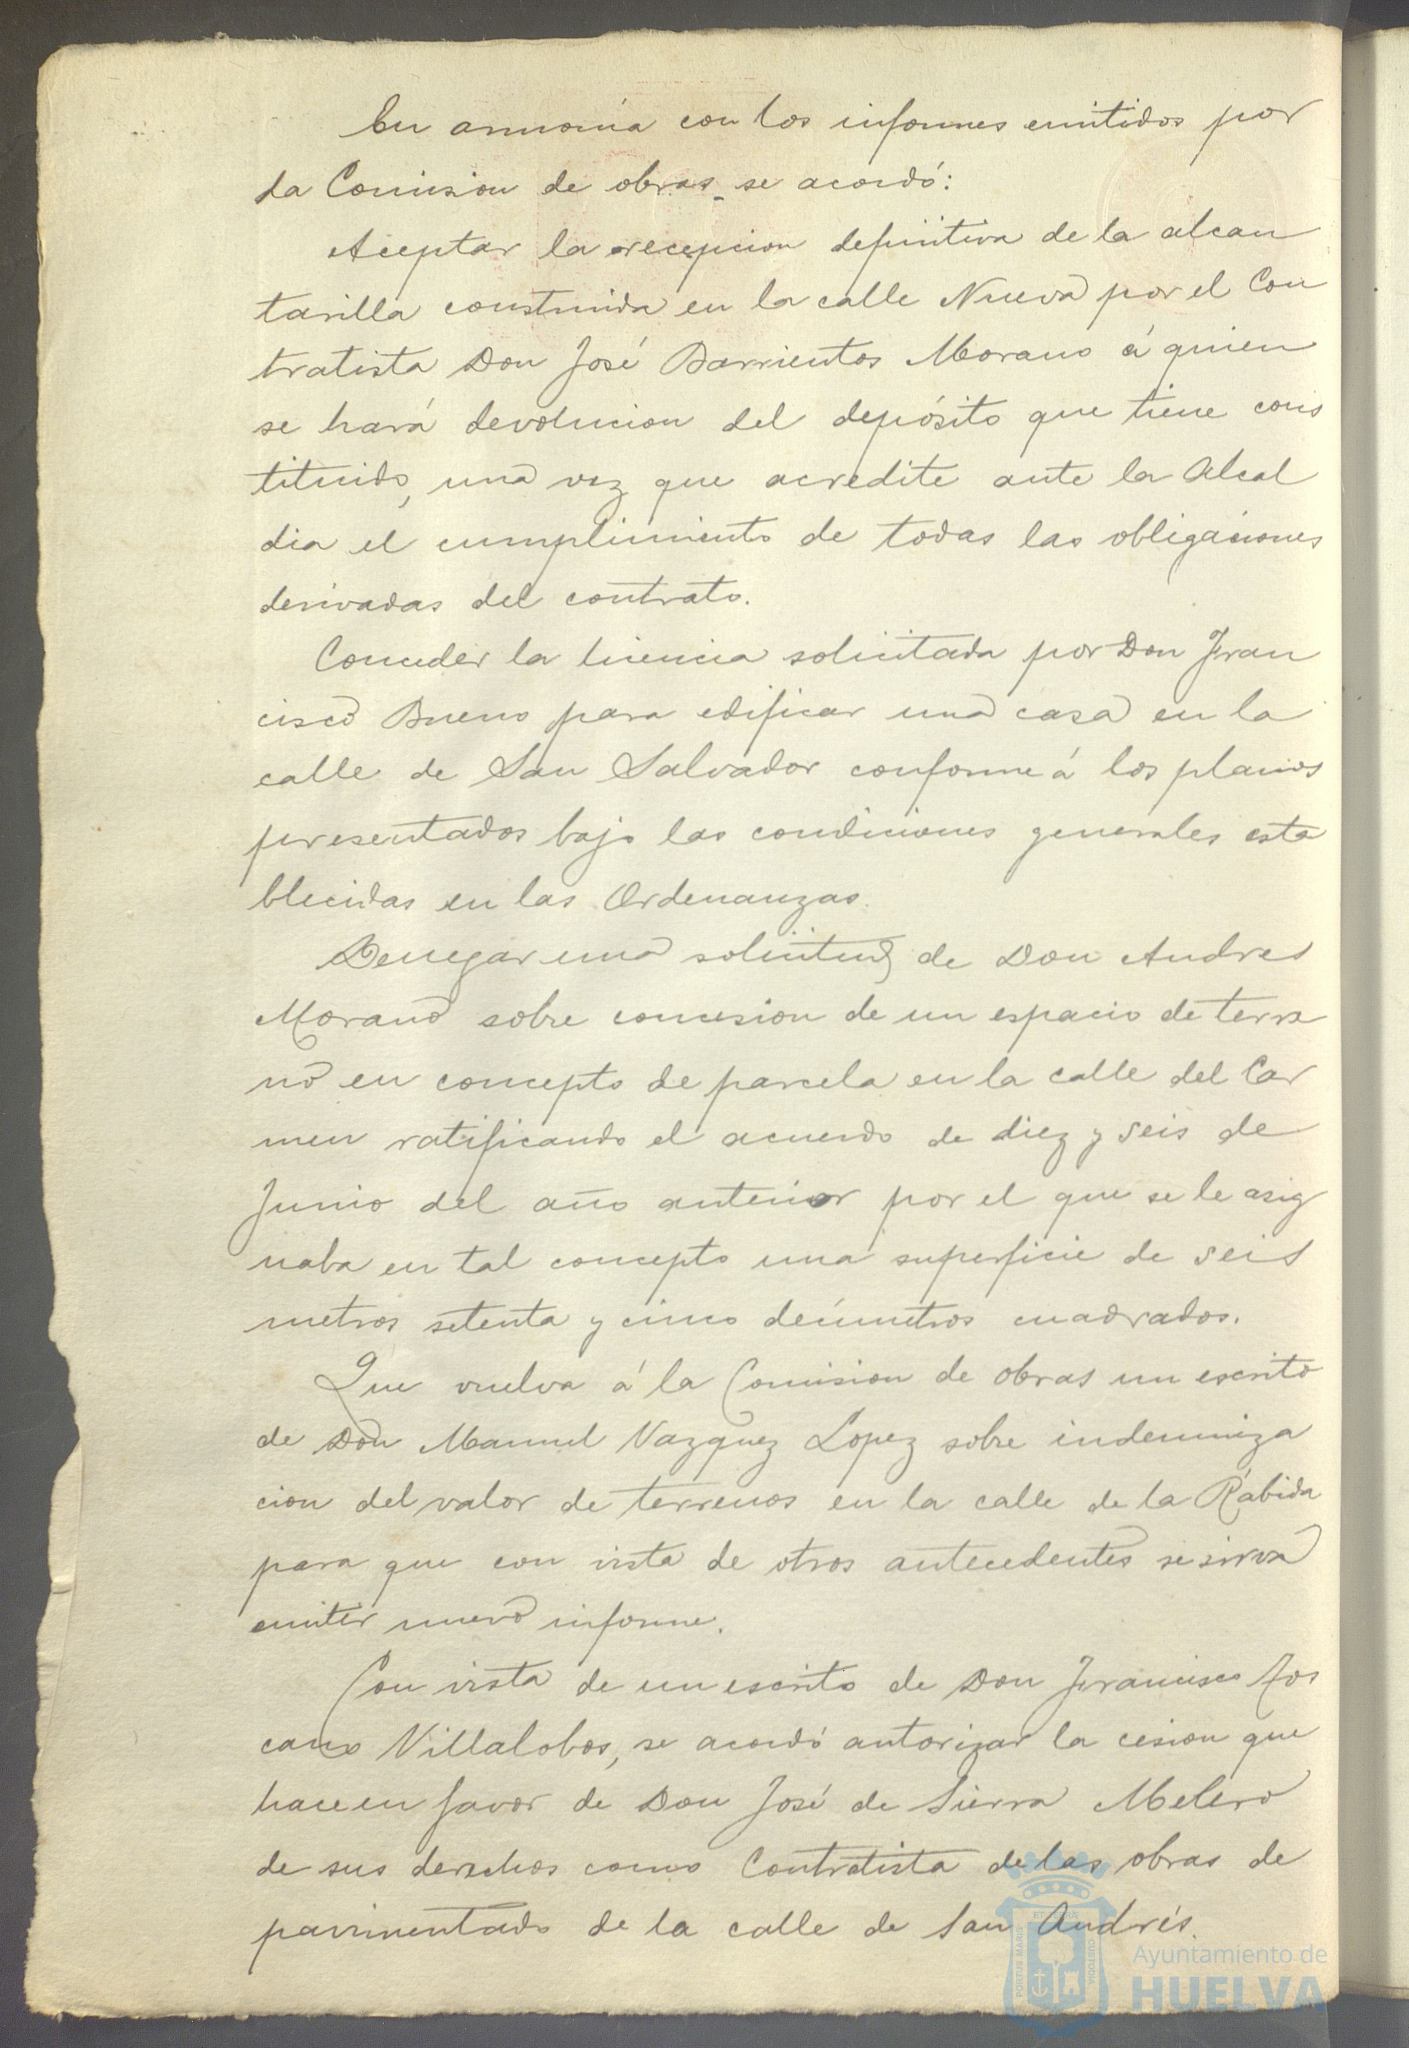 En armonía con los informes emitidos por
la Comision de obras se acordó:
Aceptar la recepcion definitiva de la alcan
tarilla construida en la calle Nueva por el Con
tratista Don José Barrientos Morano á quien
se hará devolucion del depósito que tiene cons
tituido, una vez que acredite ante la Alcal
dia el cumplimiento de todas las obligaciones
derivadas del contrato.
Conceder la licencia solicitada por Don Fran
cisco Bueno para edificar una casa en la
calle de San Salvador conforme á los planos
presentados bajo las condiciones generales esta
blecidas en las Ordenanzas.
Denegar una solicitud de Don Andres
Morano sobre concesion de un espacio de terre
no en concepto de parcela en la calle del Car
men ratificando el acuerdo de diez y seis de
Junio del año anterior por el que se le asig
naba en tal concepto una superficie de seis
metros setenta y cinco decímetros cuadrados.
Que vuelva á la Comision de obras un escrito
de Don Manuel Vazquez Lopez sobre indemniza
cion del valor de terrenos en la calle de la Rábida
para que con vista de otros antecedentes se sirva
emitir nuevo informe.
Con vista de un escrito de Don Francisco Tos
cano Villalobos, se acordó autorizar la cesion que
hace en favor de Don José de Sierra Melero
de sus derechos como Contratista de las obras de
pavimentado de la calle de San Andrés.
Ayuntamiento de
HUELVA